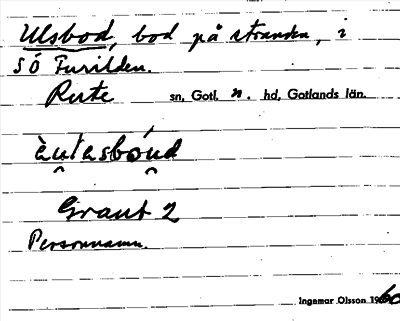 Ulsbod, bod på stranden, i
SÖ Furilden.
Rute sn, Gotl. n. hd, Gotlands län.
Grant 2
Personnamn.
Ingemar Olsson 1960